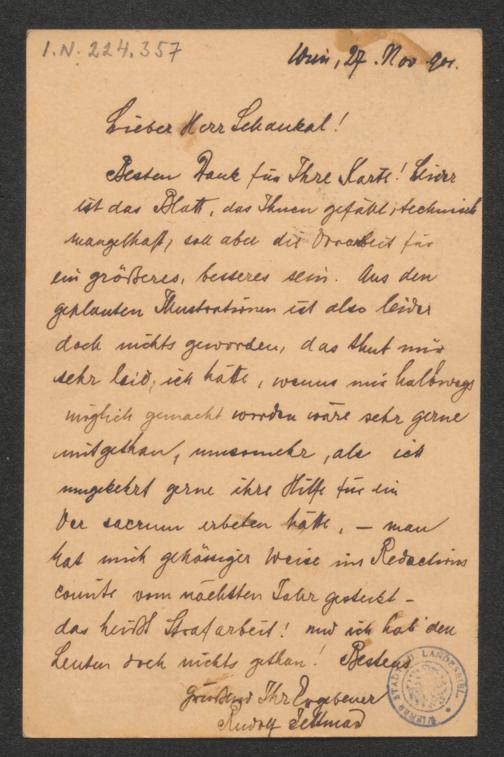 I.N. 224.357
Wien, 27. Nov 901.
Lieber Herr Schaukal!
Besten Dank für Ihre Karte! Leider
ist das Blatt, das Ihnen gefällt, technisch
mangelhaft, soll aber die Vorarbeit für
ein größeres, besseres sein. Aus den
geplanten Illustrationen ist also leider
doch nichts geworden, das thut mir
sehr leid, ich hätte, wenns mir halbwegs
möglich gemacht worden wäre sehr gerne
mitgethan, umsomehr, als ich
umgekehrt gerne ihre Hilfe für ein
Ver sacrum erbeten hätte, – man
hat mich gehässiger Weise ins Redactions
comite vom nächsten Jahr gesteckt –
das heißt Strafarbeit! und ich hab' den
Leuten doch nichts gethan! Bestens
grüßend Ihr Ergebener
Rudolf Jettmar
WIENER STADT- U. LANDESBIBL.